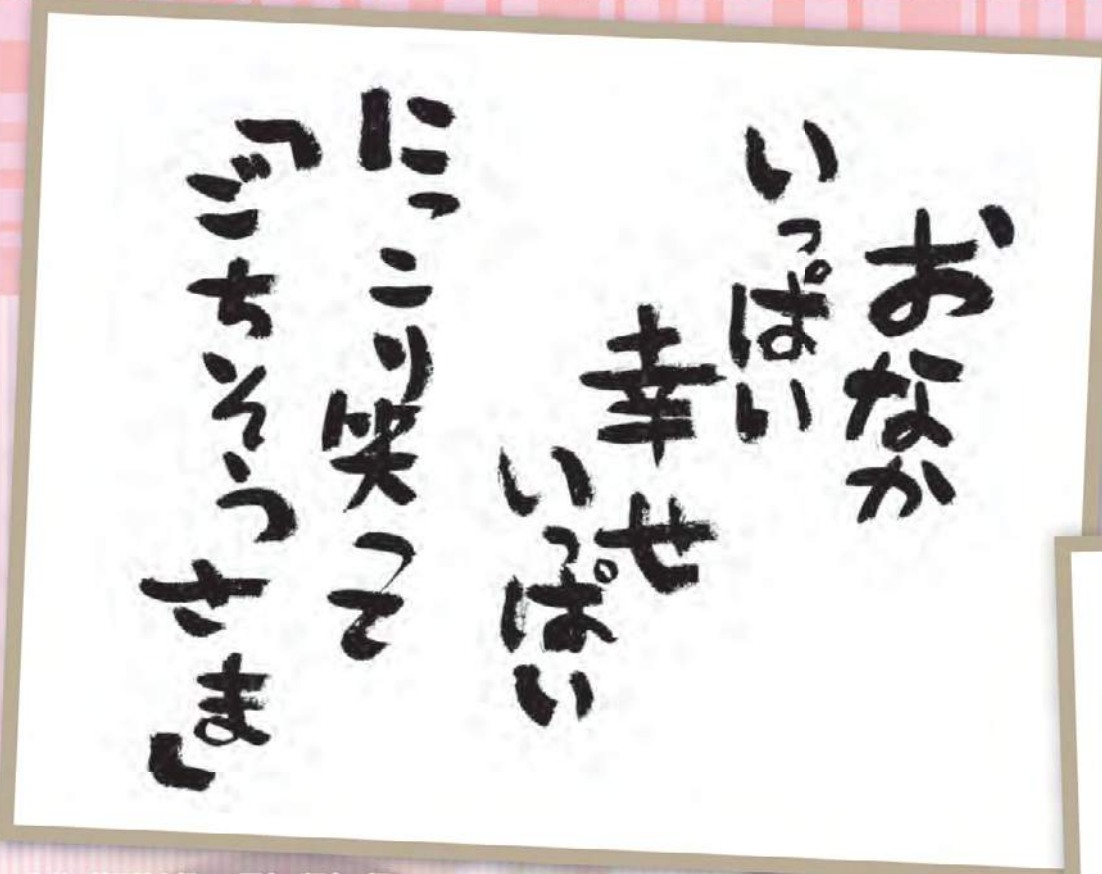 おなか
いっぱい
幸せ
いっぱい
にっこり笑って
「ごちそうさま」